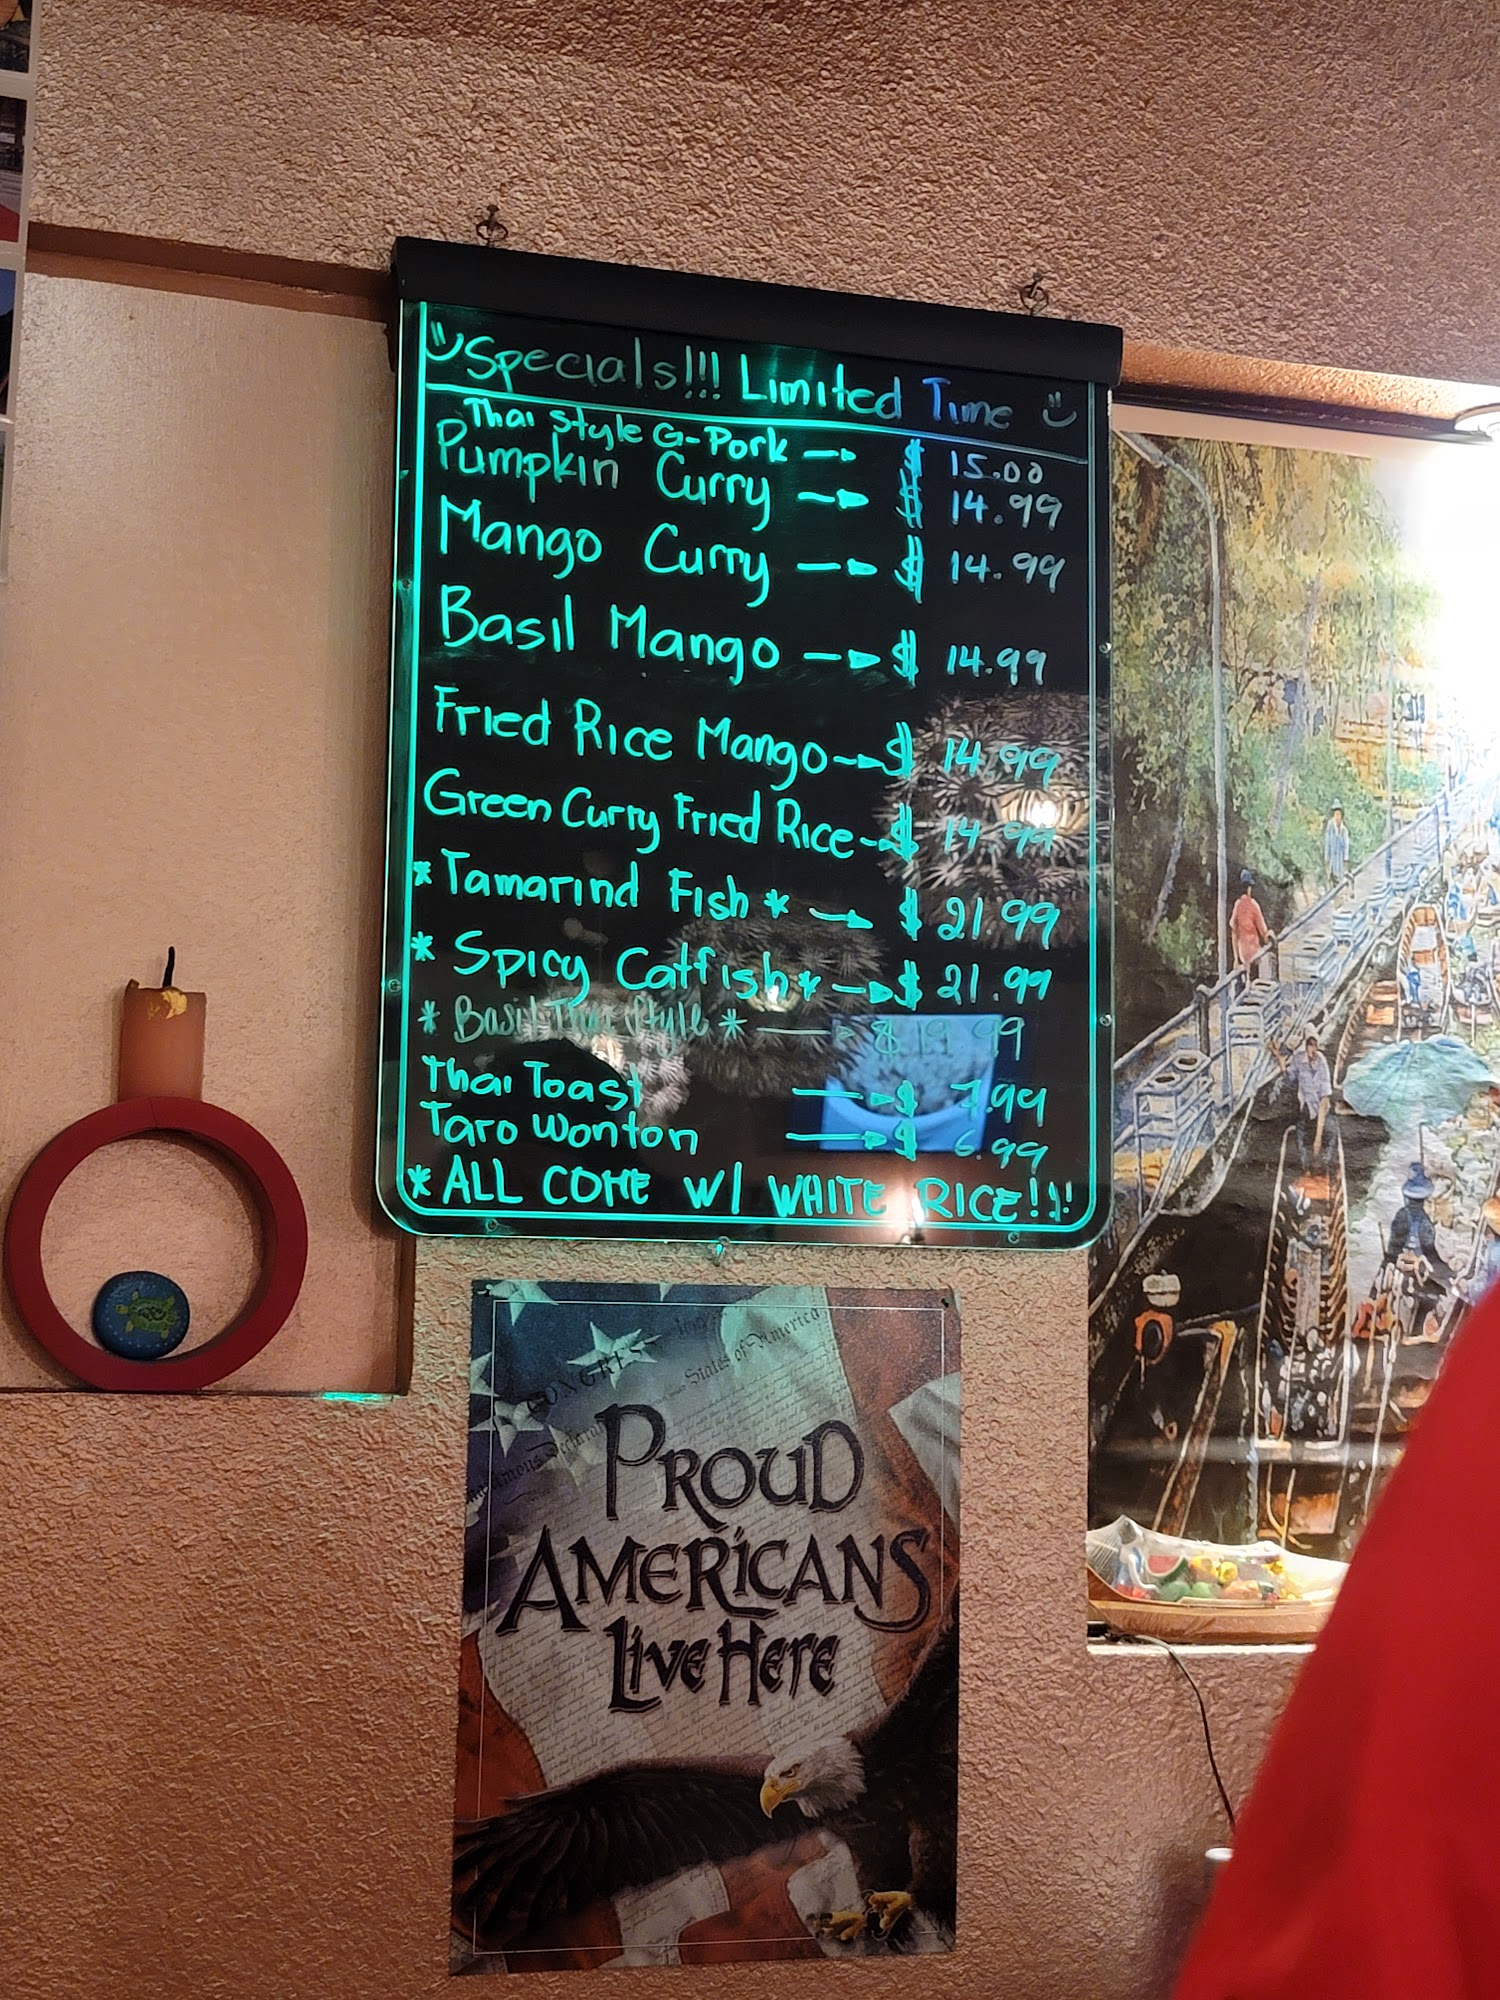 Specials!!! Limited Time
Thai Style G-Pork → $ 15.00
Pumpkin Curry → $ 14.99
Mango Curry → $ 14.99
Basil Mango → $ 14.99
Fried Rice Mango → $ 14.99
Green Curry Fried Rice → $ 14.99
*Tamarind Fish* → $ 21.99
* Spicy Catfish* → $ 21.99
* Basil Thai Style * → $ 19.99
Thai Toast → $ 7.99
Taro Wonton → $ 6.99
*ALL COME W/ WHITE RICE!!!
CONGRESS
States of America
PROUD
AMERICANS
Live Here